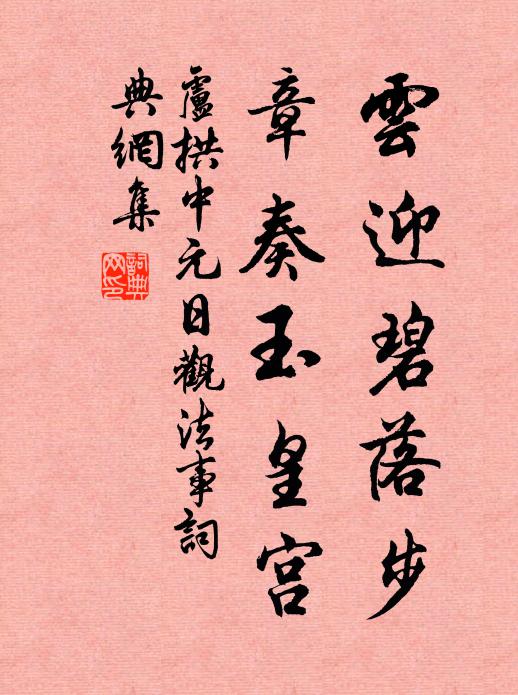 雲迎碧落步
章奏玉皇宫
盧拱中元日觀法事詞
典網集
詞典
网印